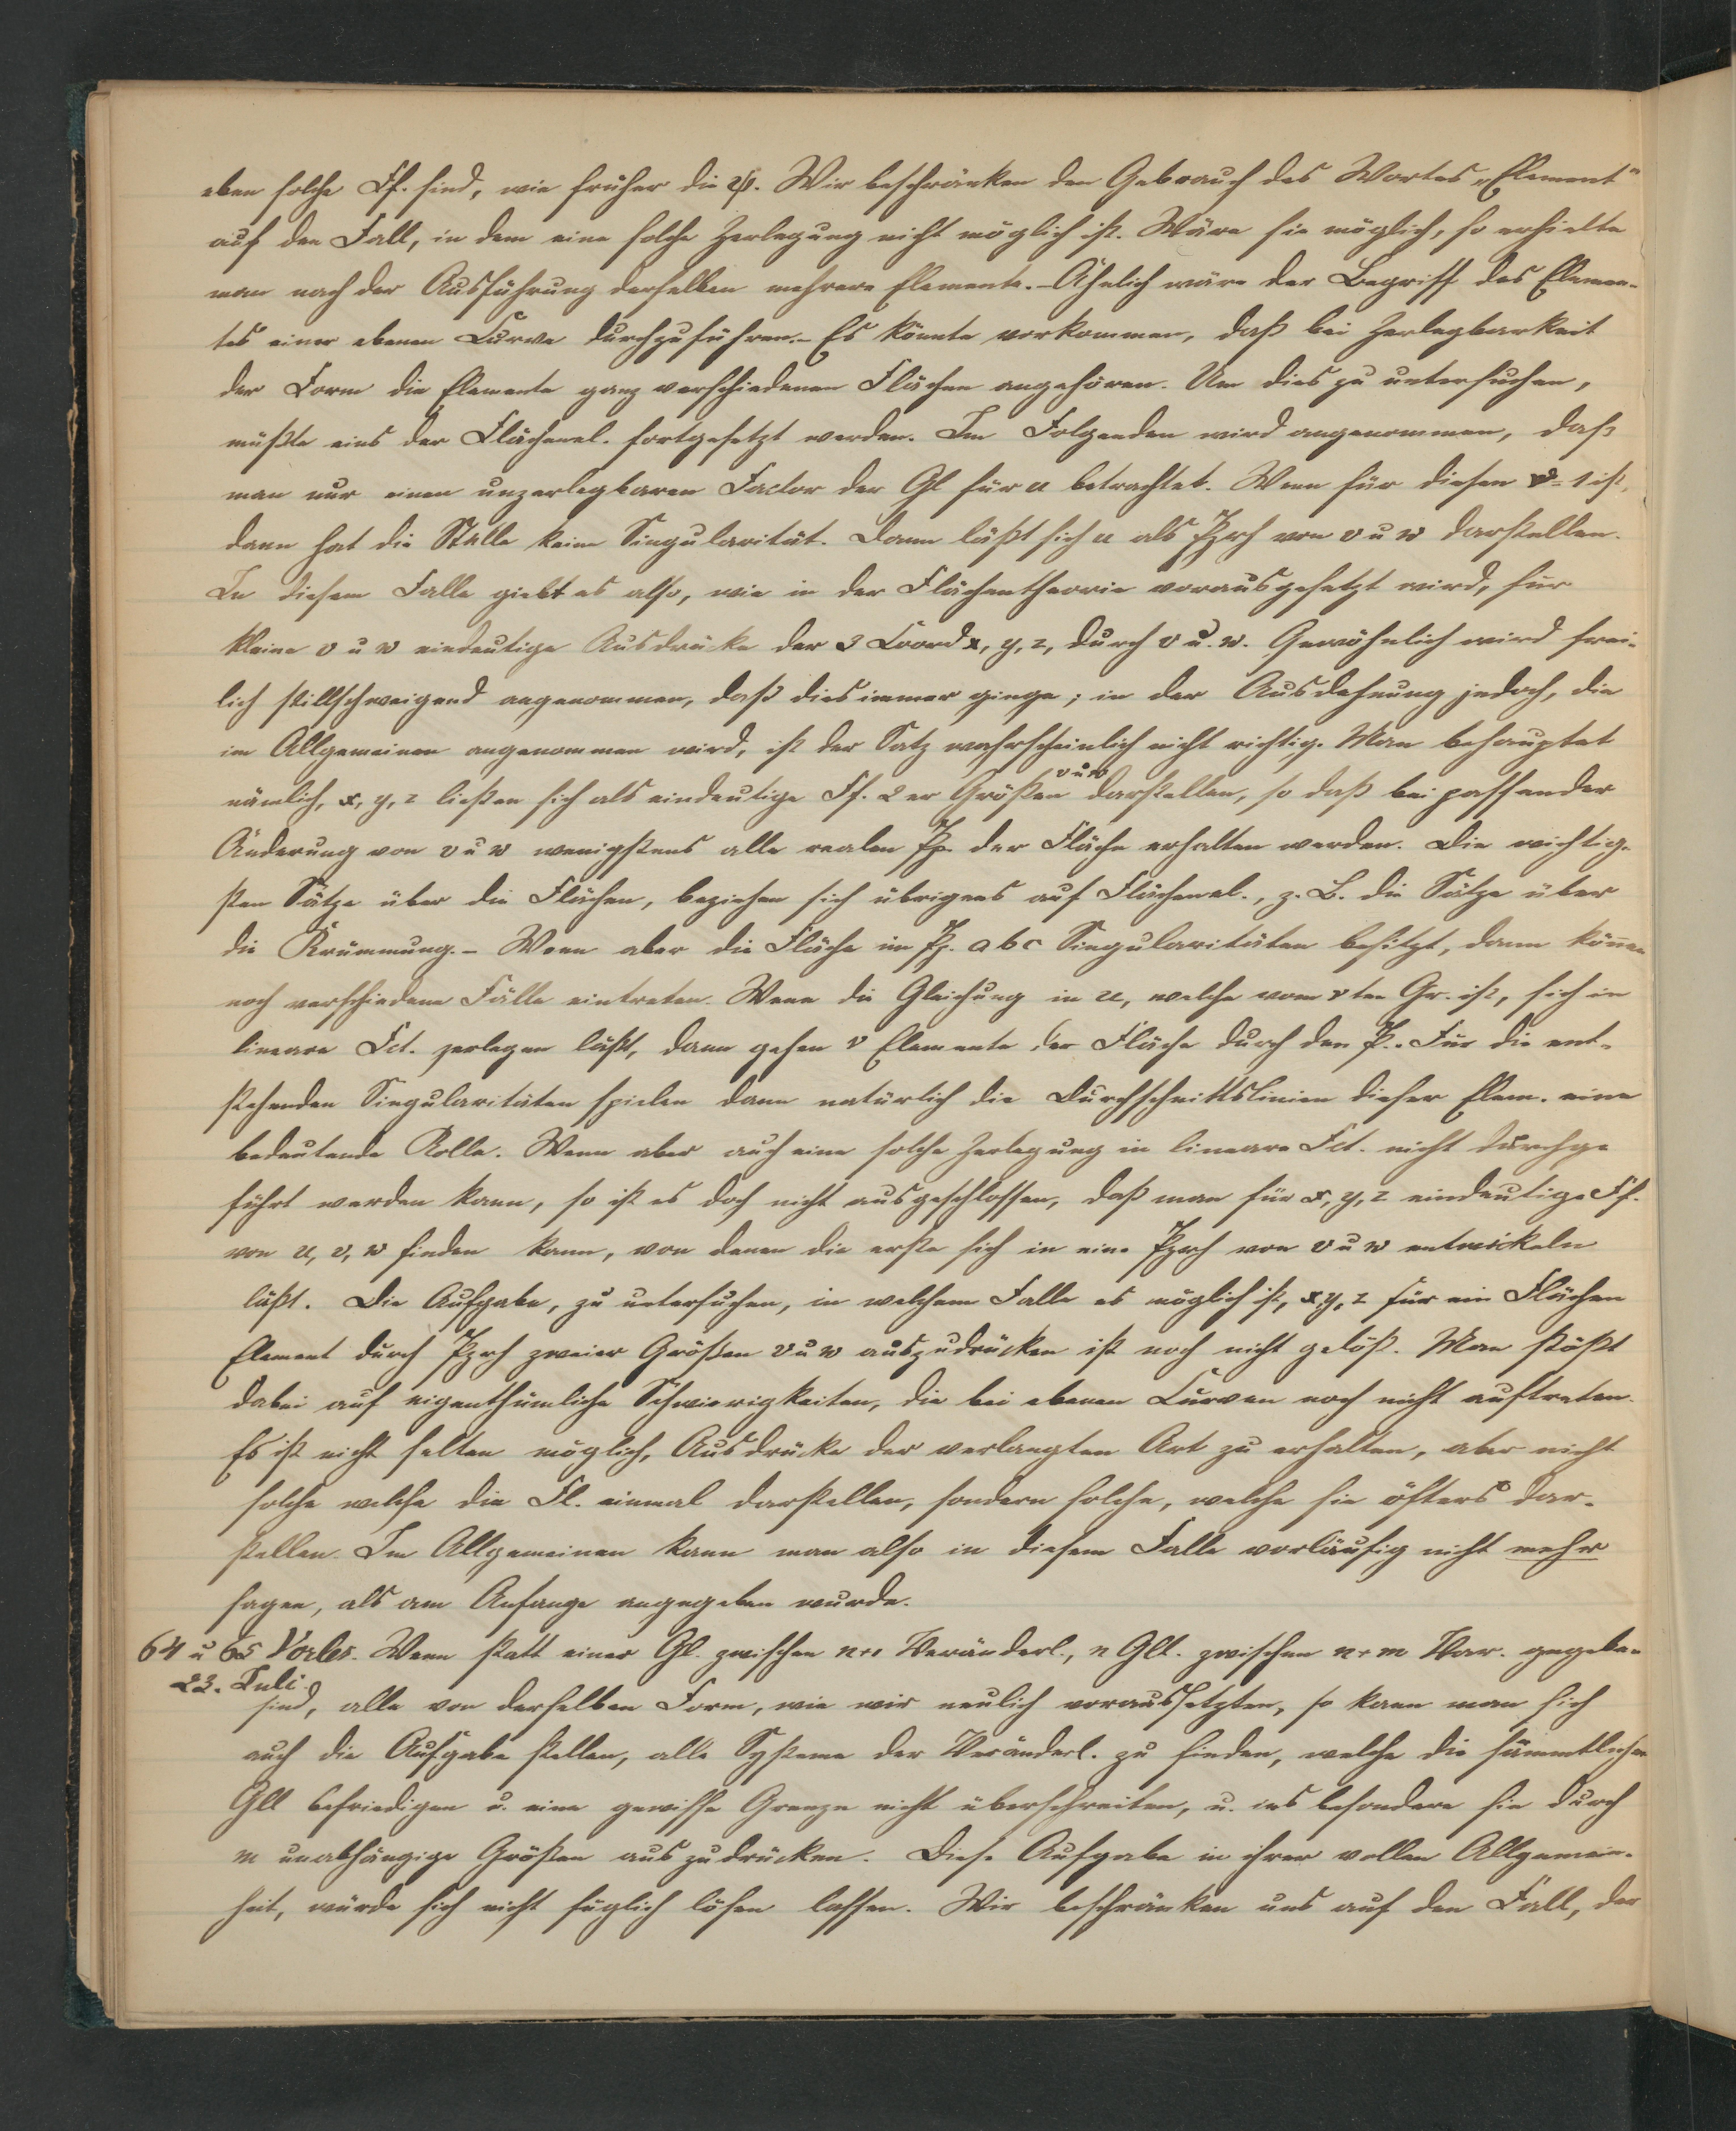 eben solche Ff. sind, wie früher die ψ. Wir beschränken den Gebrauch des Wortes „Element“
auf den Fall, in dem eine solche Zerlegung nicht möglich ist. Wäre sie möglich, so erhielte
man nach der Ausführung derselben mehrere Elemente. – Ähnlich wäre der Begriff des Elemen-
tes einer ebenen Curve durchzuführen. – Es könnte vorkommen, daß bei Zerlegbarkeit
der Form die Elemente ganz verschiedenen Flächen angehören. Um dies zu untersuchen,
müßte eins der Flächenel. fortgesetzt werden. Im Folgenden wird angenommen, daß
man nur einen unzerlegbaren Factor der Gl für u betrachtet. Wenn für diesen ν = 1 ist,
dann hat die Stelle keine Singularität. Dann läßt sich u als Pzrh von v u w darstellen.
In diesem Falle giebt es also, wie in der Flächentheorie vorausgesetzt wird, für
kleine v u w eindeutige Ausdrücke der 3 Coord x, y, z, durch v u. w. Gewöhnlich wird frei-
lich stillschweigend angenommen, daß dies immer ginge; in der Ausdehnung jedoch, die
im Allgemeinen angenommen wird, ist der Satz wahrscheinlich nicht richtig. Man behauptet
nämlich, x, y, z ließen sich als eindeutige Ff. 2 er Größen v u w darstellen, so daß bei passender
Änderung von v u w wenigstens alle realen Pp. der Fläche erhalten werden. Die wichtig-
sten Sätze über die Flächen, beziehen sich übrigens auf Flächenel., z. B. die Sätze über
die Krümmung. – Wenn aber die Fläche im P. a b c Singularitäten besitzt, dann können
noch verschiedene Fälle eintreten. Wenn die Gleichung in u, welche vom ν ten Gr. ist, sich in
lineare Fct. zerlegen läßt, dann gehen ν Elemente der Fläche durch den P.. Für die ent-
stehenden Singularitäten spielen dann natürlich die Durchschnittslinien dieser Elem. eine
bedeutende Rolle. Wenn aber auch eine solche Zerlegung in lineare Fct. nicht durchge
führt werden kann, so ist es doch nicht ausgeschlossen, daß man für x, y, z eindeutige Ff.
von u, v, w finden kann, von denen die erste sich in eine Pzrh von v u w entwickeln
läßt. Die Aufgabe, zu untersuchen, in welchem Falle es möglich ist, x, y, z für ein Flächen
Element durch Pzrh zweier Größen v u w auszudrücken ist noch nicht gelöst. Man stößt
dabei auf eigenthümliche Schwierigkeiten, die bei ebenen Curven noch nicht auftreten.
Es ist nicht selten möglich, Ausdrücke der verlangten Art zu erhalten, aber nicht
solche welche die Fl. einmal darstellen, sondern solche, welche sie öfters dar-
stellen. Im Allgemeinen kann man also in diesem Falle vorläufig nicht mehr
sagen, als am Anfange angegeben wurde.
64 u 65 Vorles. Wenn statt einer Gl. zwischen n+1 Veränderl., n Gll. zwischen n+m Var. gegeben
23. Juli.
sind, alle von derselben Form, wie wir neulich voraussetzten, so kann man sich
auch die Aufgabe stellen, alle Systeme der Veränderl. zu finden, welche die sämmtlichen
Gll befriedigen u. eine gewisse Grenze nicht überschreiten, u. ins besondere sie durch
m unabhängige Größen aus zu drücken. Diese Aufgabe in ihrer vollen Allgemein-
heit, würde sich nicht füglich lösen lassen. Wir beschränken uns auf den Fall, der